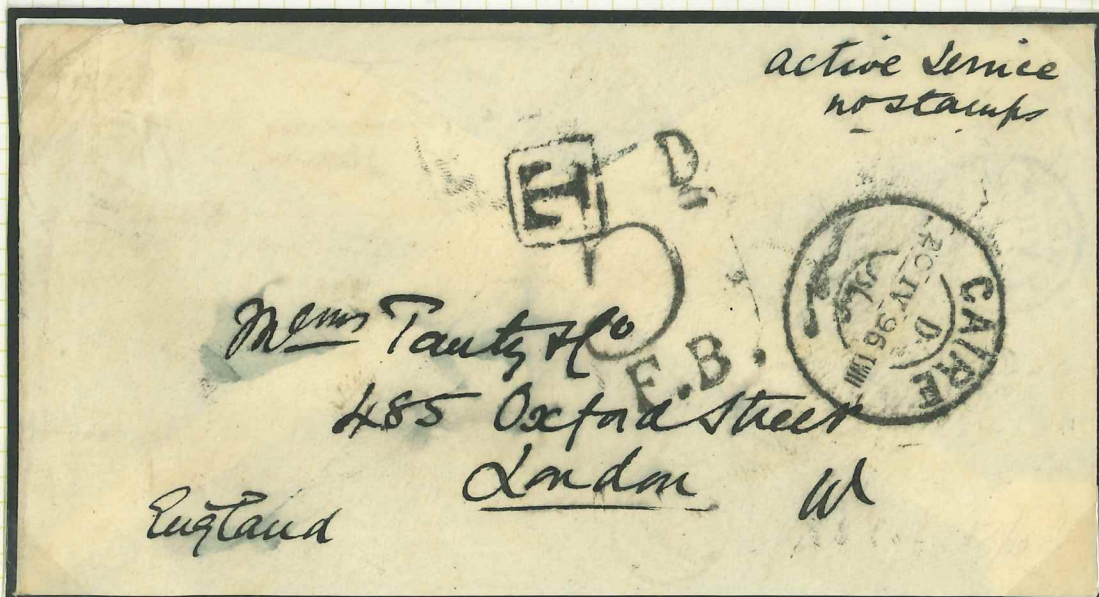 active Service
no stamps
T
5
D.
F.B.
CAIRE
D.
20 IV 96
Messrs Tautz & Co
485 Oxford Street
London W
England